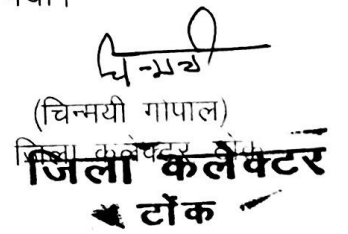 चिन्मयी
(चिन्मयी गोपाल)
जिला कलेक्टर टोंक
जिला कलेक्टर
टोंक